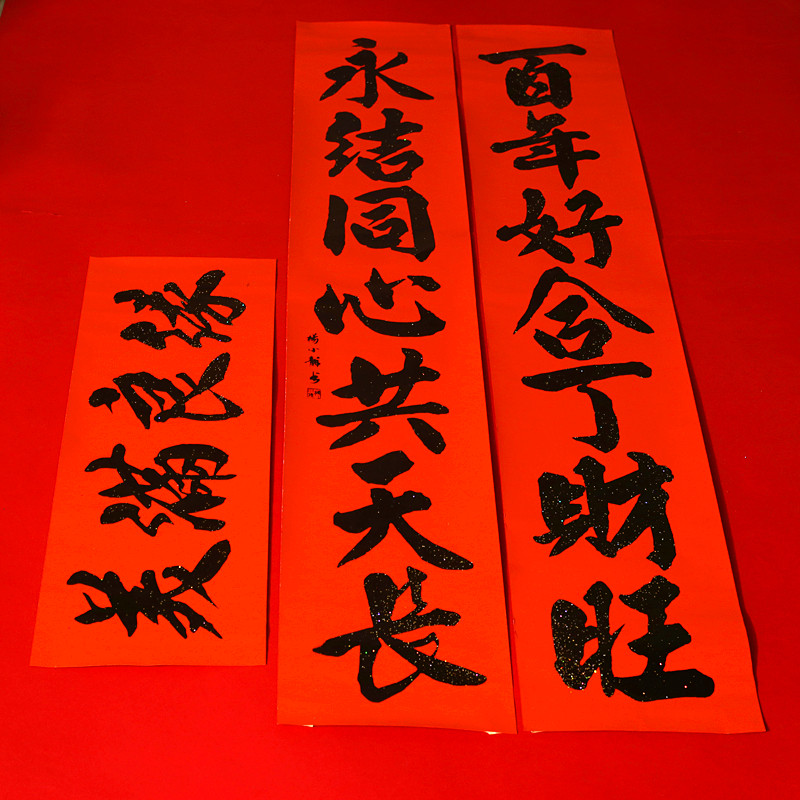 百年好合丁財旺
永结同心共天長
美满良缘